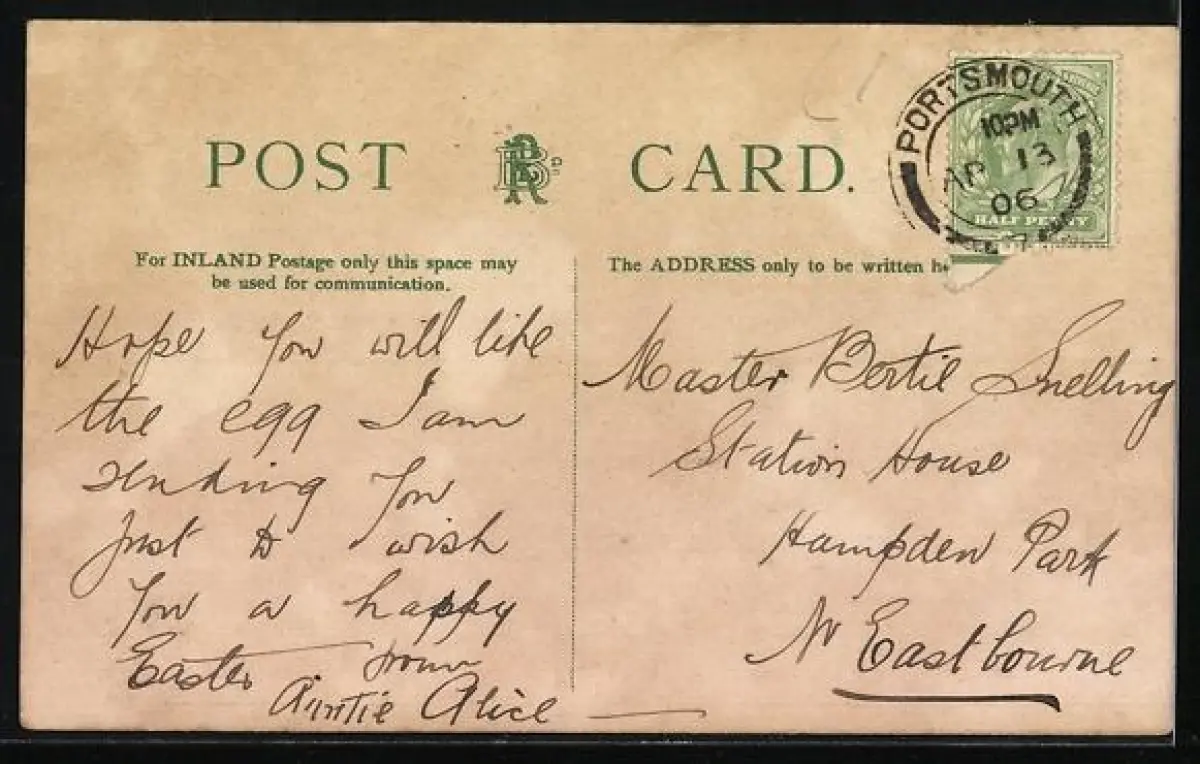 POST CARD.
PORTSMOUTH
10PM
AP 13
06
HALF PENNY
For INLAND Postage only this space may
be used for communication.
The ADDRESS only to be written
Hope you will like
the egg I am
sending you
just to wish
you a happy
Easter from
Auntie Alice
Master Bertie Snelling
Station House
Hampden Park
Nr Eastbourne